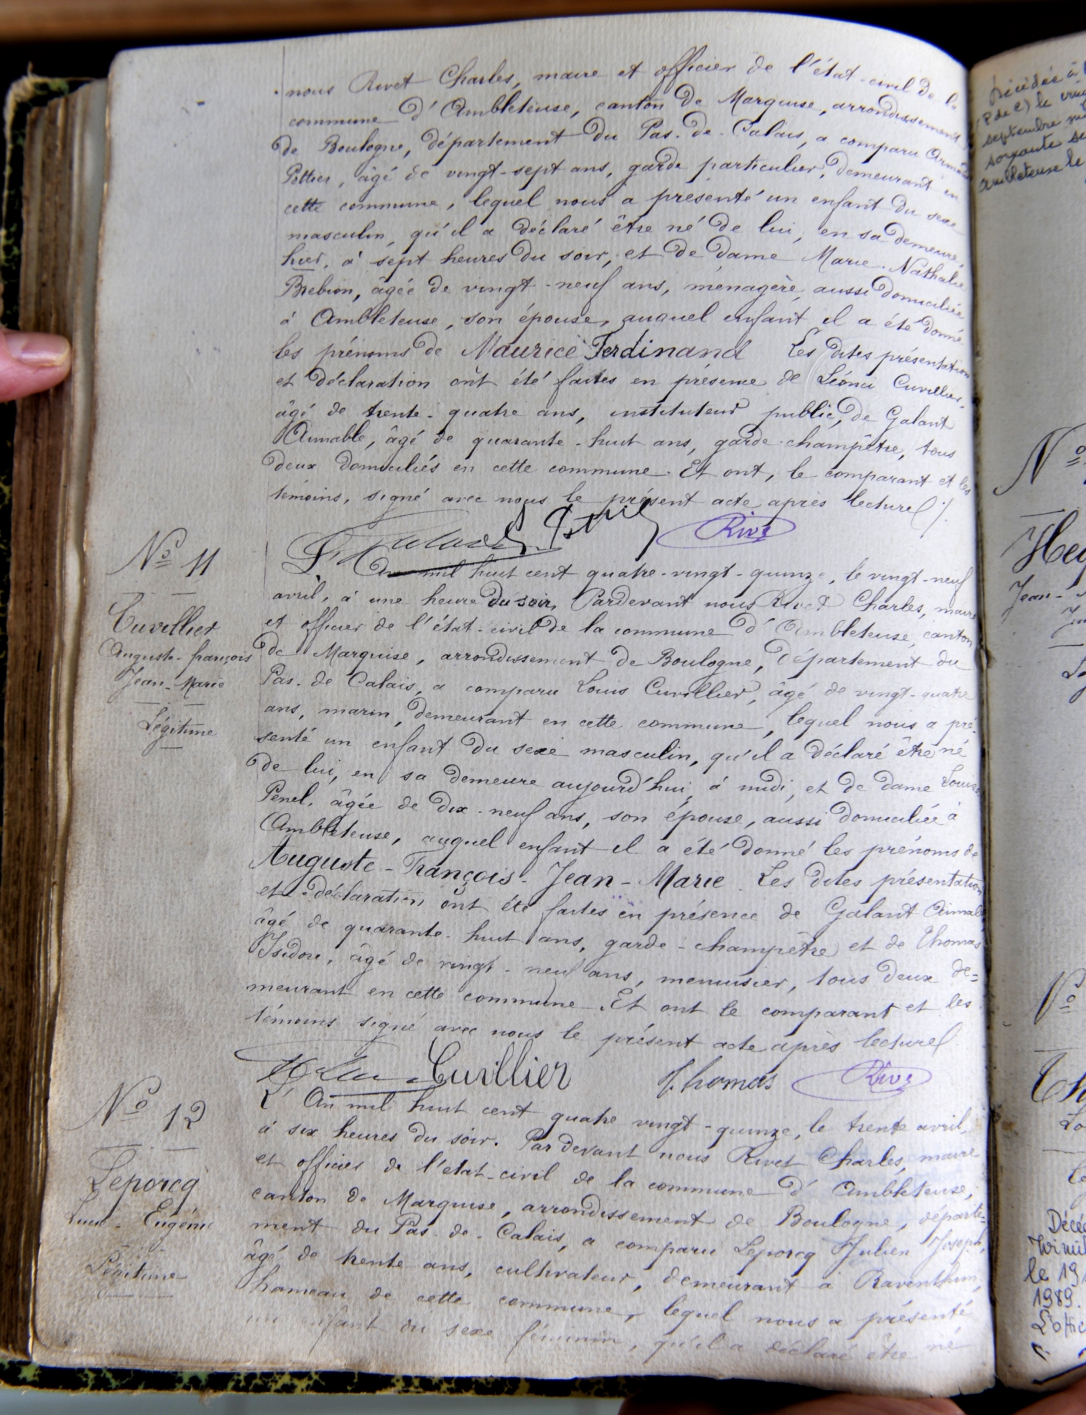 nous Rivet Charles, maire et officier de l'état-civil de la
commune d'Ambleteuse, canton de Marquise, arrondissement
de Boulogne, département du Pas-de-Calais, a comparu
âgé de vingt-sept ans, garde particulier, demeurant en
cette commune, lequel nous a présenté un enfant du sexe
masculin, qu'il a déclaré être né de lui, en sa demeure,
hier, à sept heures du soir, et de dame Marie-Nathalie
Brebion, âgée de vingt-neuf ans, ménagère, aussi domiciliée
à Ambleteuse, son épouse, auquel enfant il a été donné
les prénoms de Maurice Ferdinand Les dites présentation
et déclaration ont été faites en présence de Léonce Cuvillier,
âgé de trente-quatre ans, instituteur public, de Galant
Aimable, âgé de quarante-huit ans, garde-champêtre, tous
deux domiciliés en cette commune. Et ont, le comparant et les
témoins, signé avec nous le présent acte après lecture.
Rivet
No 11
An mil huit cent quatre-vingt-quinze, le vingt-neuf
avril, à une heure du soir, Pardevant nous Rivet Charles, maire
et officier de l'état-civil de la commune d'Ambleteuse, canton
Cuvillier
Auguste-François
Jean-Marie
Légitime
de Marquise, arrondissement de Boulogne, département du
Pas-de-Calais, a comparu Louis Cuvillier, âgé de vingt-quatre
ans, marin, demeurant en cette commune, lequel nous a pré-
senté un enfant du sexe masculin, qu'il a déclaré être né
de lui, en sa demeure aujourd'hui, à midi, et de dame Louise
Penel, âgée de dix-neuf ans, son épouse, aussi domiciliée à
Ambleteuse, auquel enfant il a été donné les prénoms de
Auguste-François-Jean-Marie. Les dites présentation
et déclaration ont été faites en présence de Galant Aimable
âgé de quarante-huit ans, garde-champêtre et de Thomas
Isidore, âgé de vingt-neuf ans, menuisier, tous deux de=
meurant en cette commune. Et ont le comparant et les
témoins signé avec nous le présent acte après lecture.
Cuvillier Thomas Rivet
No 12
L'An mil huit cent quatre vingt-quinze, le trente avril,
à six heures du soir. Pardevant nous Rivet Charles, maire
et officier de l'état-civil de la commune d'Ambleteuse,
Leporcq
Eugénie
Légitime
canton de Marquise, arrondissement de Boulogne, départe-
ment du Pas-de-Calais, a comparu Leporcq Julien Joseph,
âgé de trente ans, cultivateur, demeurant à Raventhun,
hameau de cette commune, lequel nous a présenté
un enfant du sexe féminin, qu'il a déclaré être né
Décédée à
septembre
soixante
Ambleteuse le
No
Jean-
No
Décé
le 19
1989.
L'offic